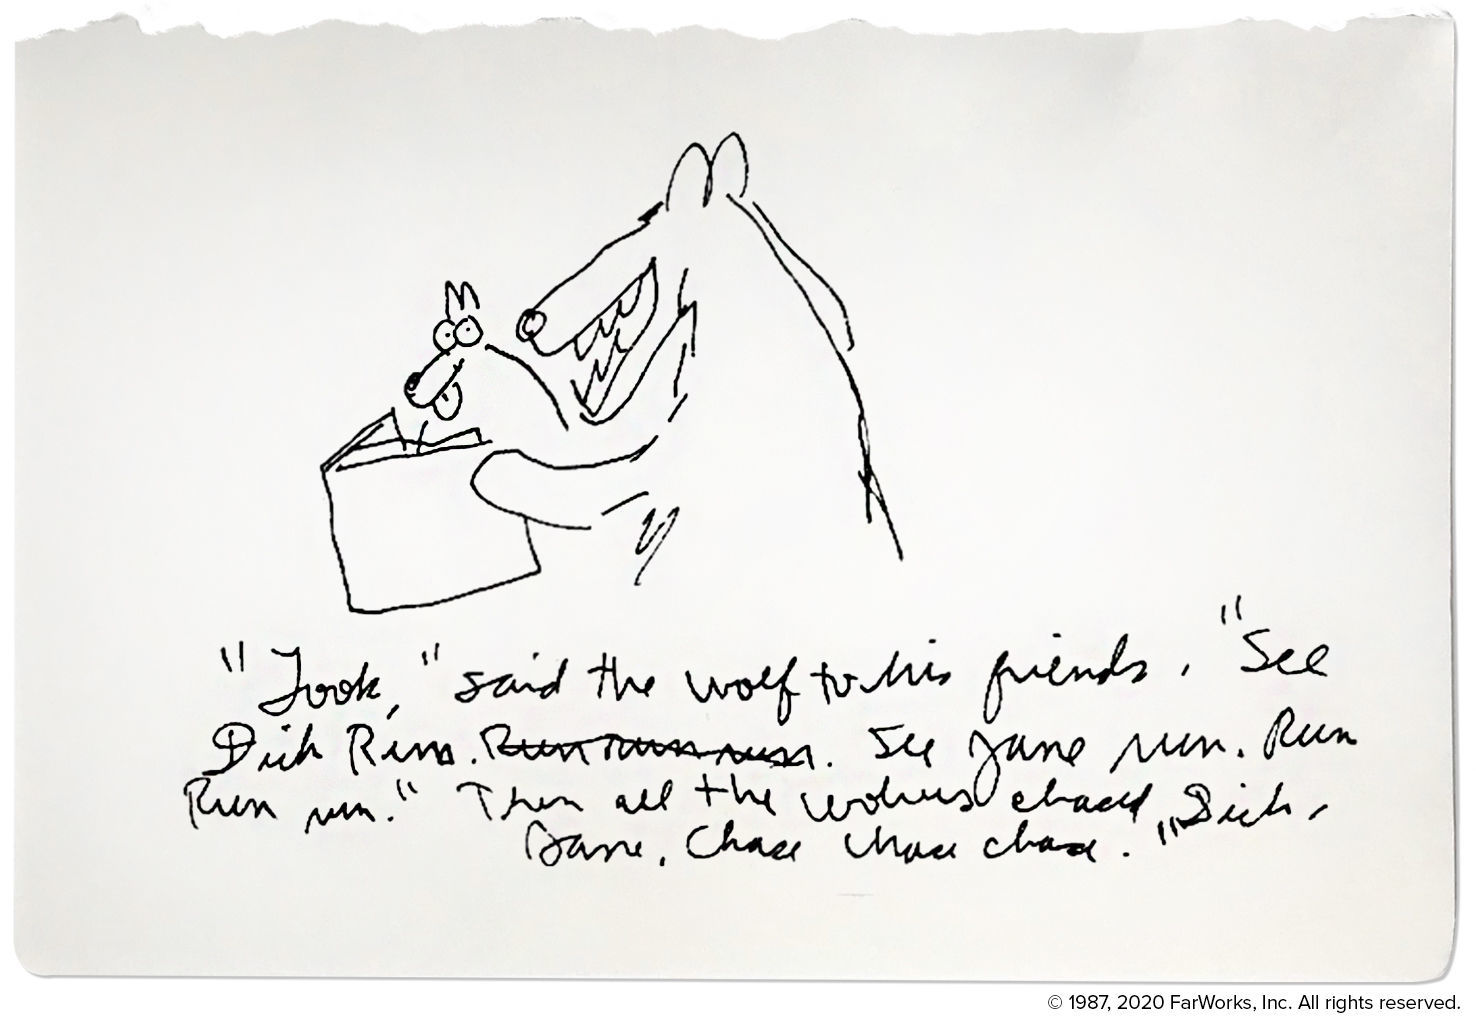 "Look," said the wolf to his friends. "See
Dick Run. Run run run. See Jane run. Run
Run run." Then all the wolves chased Dick,
Jane. Chase chase chase."
© 1987, 2020 FarWorks, Inc. All rights reserved.